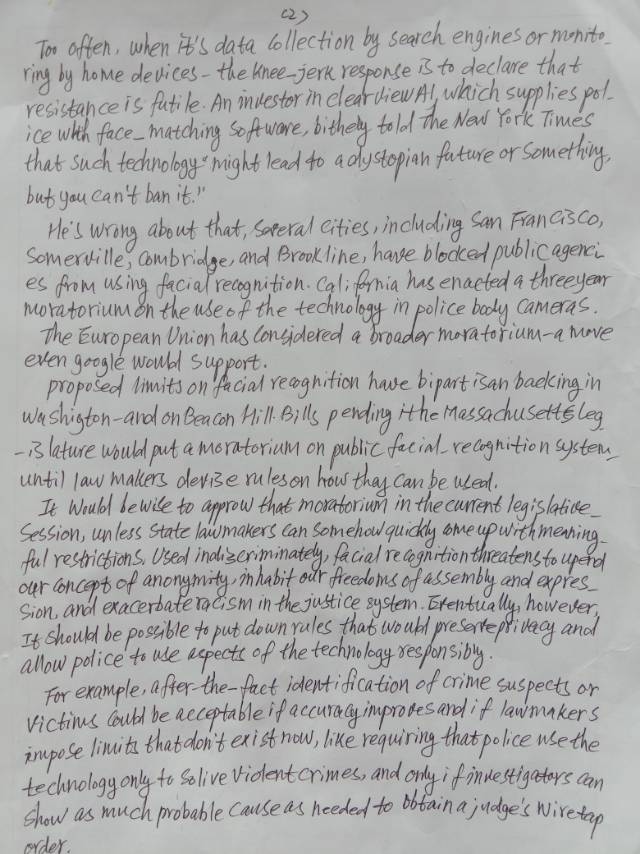 (2)
Too often, when it's data collection by search engines or monito-
ring by home devices - the knee-jerk response is to declare that
resistance is futile. An investor in clearview AI, which supplies pol-
ice with face-matching software, bithely told The New York Times
that such technology "might lead to a dystopian future or something,
but you can't ban it."
He's wrong about that, Several cities, including San Francisco,
Somerville, Cambridge, and Brookline, have blocked public agenci-
es from using facial recognition. California has enacted a three year
moratorium on the use of the technology in police body cameras.
The European Union has considered a broader moratorium-a move
even google would support.
proposed limits on facial recognition have bipartisan backing in
Washigton-and on Beacon Hill. Bills pending i the Massachusetts leg
-islature would put a moratorium on public facial-recognition system_
until law makers devise rules on how they can be used.
It would be wise to approw that moratorium in the current legislative_
Session, unless State lawmakers can somehow quickly come up with meaning_
ful restrictions. Used indiscriminately, facial recognition threatens to upend
our concept of anonymity, inhabit our freedoms of assembly and expres_
sion, and exacerbate racism in the justice system. Eventually, however,
It should be possible to put down rules that would preserve privacy and
allow police to use aspects of the technology responsibly.
For example, after-the-fact identification of crime suspects or
victims could be acceptable if accuracy improves and if lawmakers
impose limits that don't exist now, like requiring that police use the
technology only to solive violent crimes, and only if investigators can
show as much probable cause as needed to obtain a judge's wiretap
order.